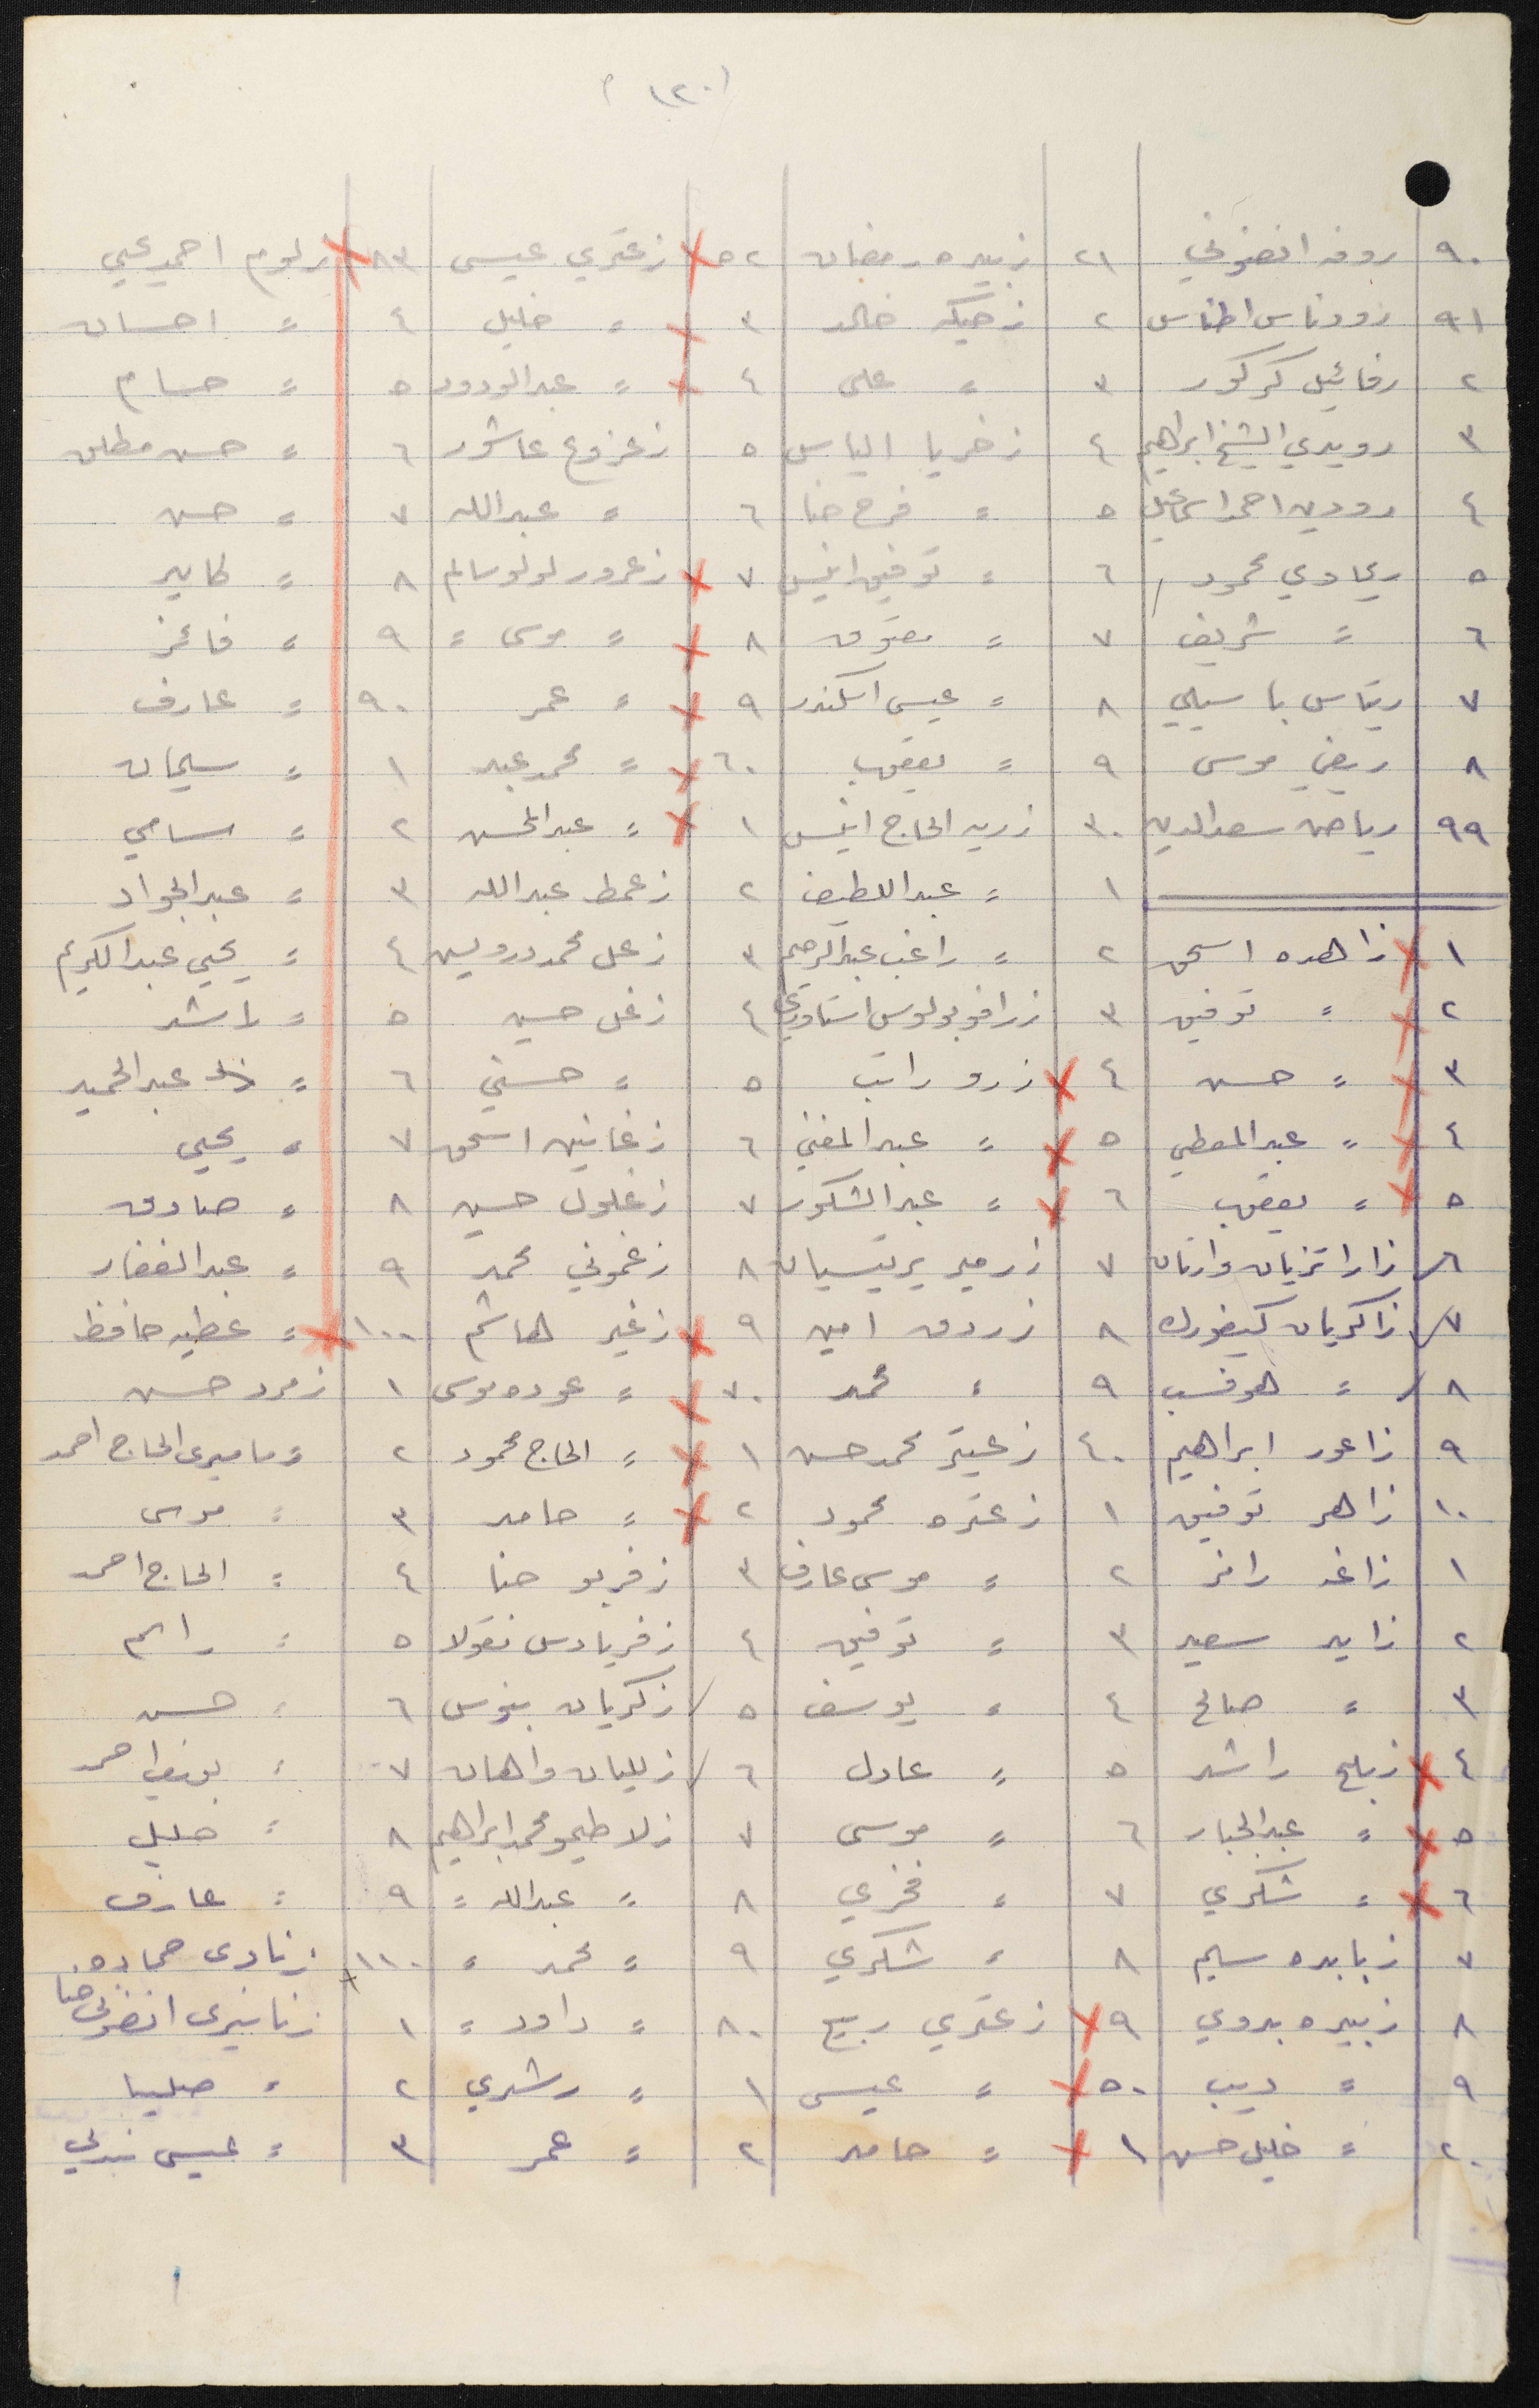 (١٢٠)
٩٠ روفه انضوني
٩١ زووناس اطناس
٢ رفائيل كركور
٣ رويدي الشيخ ابراهيم
٤ رودين احمد اسماعيل
٥ ريماوي محمود
٦ = شريف
٧ ريتاس باسيلي
٨ ريضي موسى
٩٩ رياض سعد الدين
١ زاهده اسحق
٢ = توفيق
٣ = حسن
٤ = عبد المعطي
٥ = يعقوب
٦ زاراتزيان وارتان
٧ زاكريان كيفورك
٨ = هوفسب
٩ زاعور ابراهيم
١٠ زاهر توفيق
١ زاغه رامز
٢ زايد سعيد
٣ = صالح
٤ زبلح راشد
٥ = عبد الجبار
٦ = شكري
٧ زبابده سليم
٨ زبيره بدوي
٩ = ديب
٢٠ = خليل حسن
٢١ زبيره رمضان
٢ زحيكه خالد
٣ = علي
٤ زخريا الياس
٥ = فرح حنا
٦ = توفيق انيس
٧ = معتوق
٨ = عيسى اسكندر
٩ = يعقوب
٣٠ زريد الحاج انيس
١ = عبد اللطيف
٢ = راغب عبد الرحيم
٣ زرافوبولوس استاورتي
٤ زرو راتب
٥ = عبد المغني
٦ = عبد الشكور
٧ زرمير يريتسيان
٨ زردق امين
٩ = محمد
٤٠ زعيتر محمد حسن
١ زعتره محمود
٢ = موسى عارف
٣ = توفيق
٤ = يوسف
٥ = عادل
٦ = موسى
٧ = فخري
٨ = شكري
٩ زعتري ربيع
٥٠ = عيسى
١ = حامد
٥٢ زعتري عيسى
٣ = خليل
٤ = عبد الودود
٥ زعزوع عاشور
٦ = عبد الله
٧ زعرور لولو سالم
٨ = موسى =
٩ = عمر
٦٠ = محمد عبد
١ = عبد المحسن
٢ زعمط عبد الله
٣ زعل محمد درويش
٤ زغل حسن
٥ = حسني
٦ زغانين اسحق
٧ زغلول حسين
٨ زغموني محمد
٩ زغير هاشم
٧٠ = عوده موسى
١ = الحاج محمود
٢ = حامد
٣ زفريو حنا
٤ زفريادس نقولا
٥ زكريان بنوس
٦ زلليان واهان
٧ زلاطيمو محمد ابراهيم
٨ = عبد الله =
٩ = محمد =
٨٠ = داود =
١ = رشدي
٢ = عمر
٨٣ زلوم احمد يحيى
٤ = احسان
٥ = حسام
٦ = حسن مطلق
٧ = حسن
٨ = كايد
٩ = فائز
٩٠ = عارف
١ = سليمان
٢ = سامي
٣ = عبد الجواد
٤ = يحيى عبد الكريم
٥ = راشد
٦ = عبد الحميد
٧ = يحيى
٨ = صادق
٩ = عبد الغفار
١٠٠ = عطيه حافظ
١ زمرد حسن
٢ زماميري الحاج احمد
٣ = موسى
٤ = الحاج احمد
٥ = راسم
٦ = حسن
٧ = يوسف احمد
٨ = خليل
٩ = عارف
١١٠ زنادى حماده
١ زنانيرى انضوني حنا
٢ = صليبا
٣ = عيسى